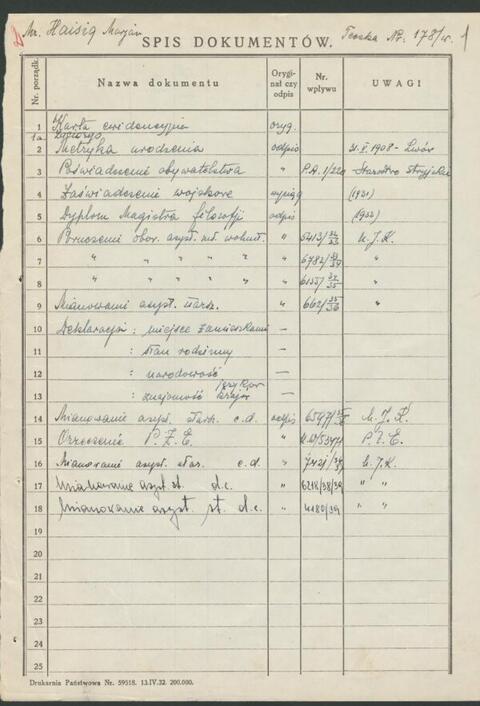 Mr. Haisig Marjan
SPIS DOKUMENTÓW.
Teczka Nr. 178/w. 1
Nr. porządk.
Nazwa dokumentu
Orygi-
nał czy
odpis
Nr.
wpływu
UWAGI
1 Karta ewidencyjna oryg.
1a
2 Metryka urodzenia odpis 31. V. 1908 - Lwów
3 Poświadczenie obywatelstwa " P.A. 1/220 Starostwo stryjskie
4 Zaświadczenie wojskowe wyciąg (1931)
5 Dyplom Magistra filozofji odpis (1932)
6 Poruczenie obow. asyst. " 5413/ U.J.K.
7 " " " " " 6782/ "
8 " " " " " 6155/ "
9 Mianowanie asyst. starsz. " 662/ "
10 Deklaracja : miejsce zamieszkania —
11 : stan rodzinny —
12 : narodowość —
13 : znajomość języków kraju —
14 Mianowanie asyst. stars. c.d. odpis 6597/ U.J.K.
15 Orzeczenie P.Z.E. " P.Z.E.
16 Mianowanie asyst. star. c.d. " U.J.K.
17 Mianowanie asyst. st. d.c. " 6218/38/39 " "
18 Mianowanie asyst. st. d.c. " 4180/39 " "
19
20
21
22
23
24
25
Drukarnia Państwowa Nr. 59518. 13.IV.32. 200.000.